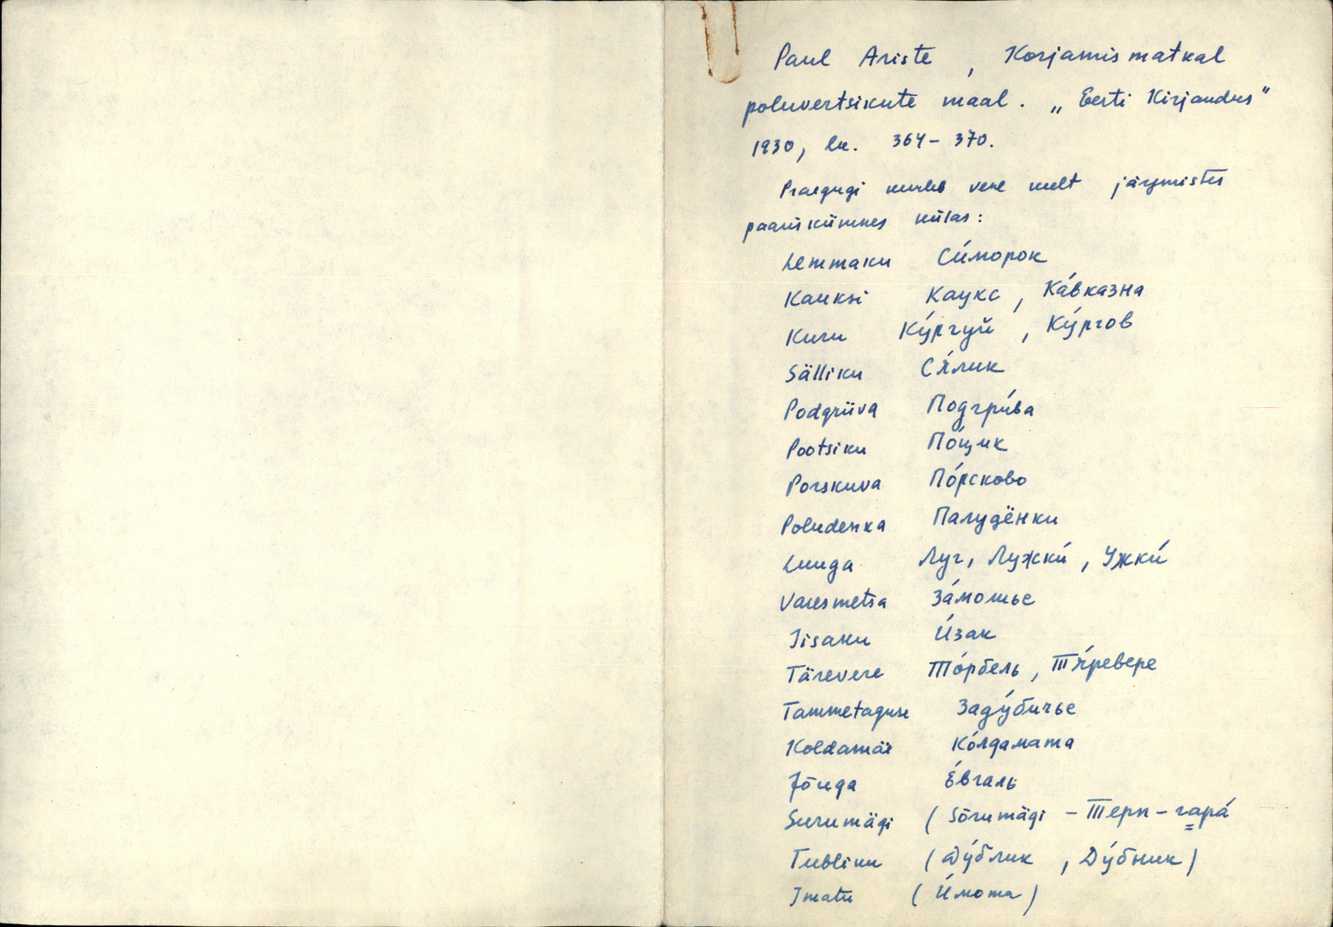 Paul Ariste, Korjamismatkal
poluvertsikute maal. „Eesti Kirjandus"
1930, lk. 364-370.
Praegugi kuuleb vene keelt järgmistes
paarikümnes külas:
Lemmaku Си́морок
Kauksi Каукс, Ка́вказна
Kuru Ку́ргуй, Ку́ргов
Sälliku Ся́лик
Podgriiva Подгри́ва
Pootsiku По́щик
Porskuva По́рсково
Poludenka Палудёнки
Luuga Луг, Лужки́, Ужки́
Varesmetsa За́мошье
Iisaku И́зак
Tärevere То́рбель, Тя́ревере
Tammetaguse Заду́бичье
Koldamäe Ко́лдамата
Jõuga Е́вгаль
Surumägi (Sõrumägi - Терп-гара́
Tubliku (Ду́блик, Ду́бник)
Imatu (И́мота)